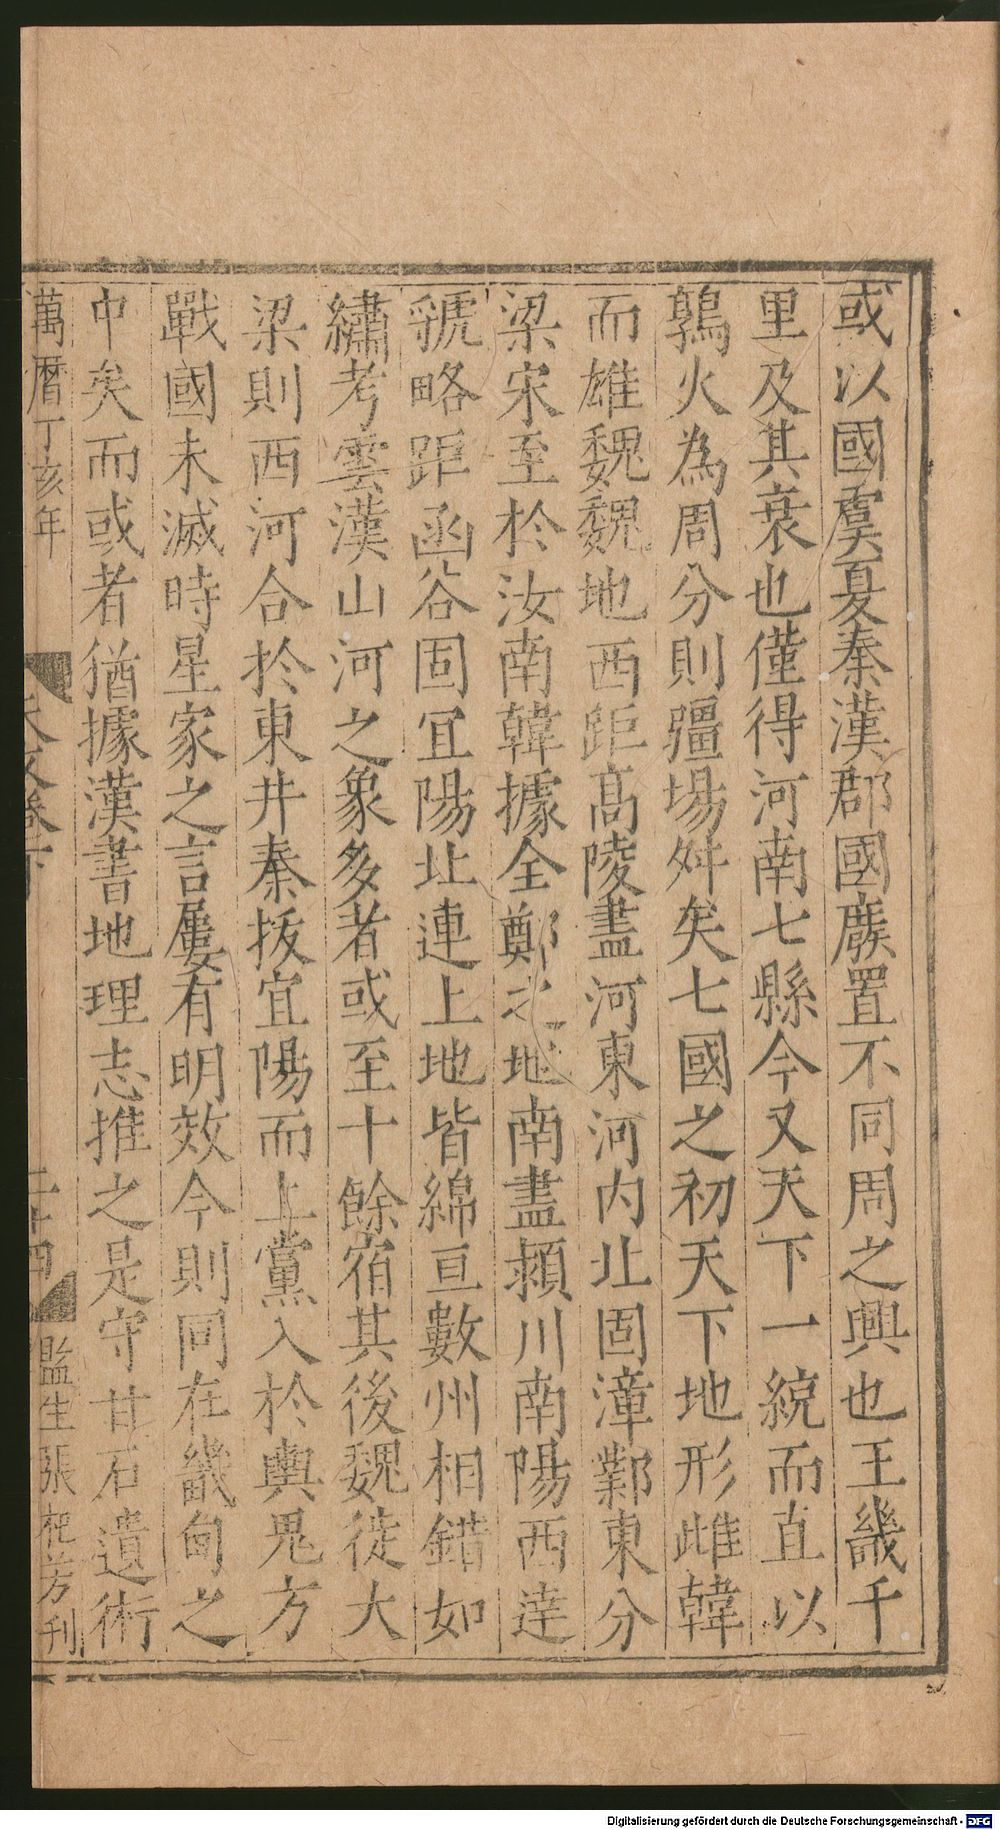 或以國虞夏秦漢郡國廢置不同周之興也王畿千
里及其衰也僅得河南七縣今又天下一統而直以
鶉火為周分則疆場舛矣七國之初天下地形雌韓
而雄魏魏地西距高陵盡河東河內北固漳鄴東分
梁宋至於汝南韓據全鄭之地南盡潁川南陽西達
虢略距函谷固宜陽北連上地皆綿亘數州相錯如
繡考雲漢山河之象多者或至十餘宿其後魏徙大
梁則西河合於東井秦拔宜陽而上黨入於輿鬼方
戰國未滅時星家之言屢有明效今則同在畿甸之
中矣而或者猶據漢書地理志推之是守甘石遺術
萬曆丁亥年
天文卷下
二十四
監生張 芳刊
Digitalisierung gefördert durch die Deutsche Forschungsgemeinschaft - DFG